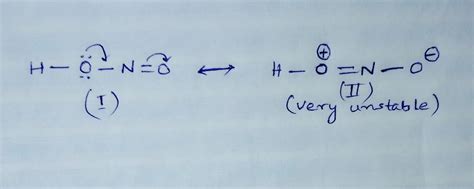 H — Ö — N = O ⟷ H — O⊕ = N — O⊖
(I) (II)
(very unstable)